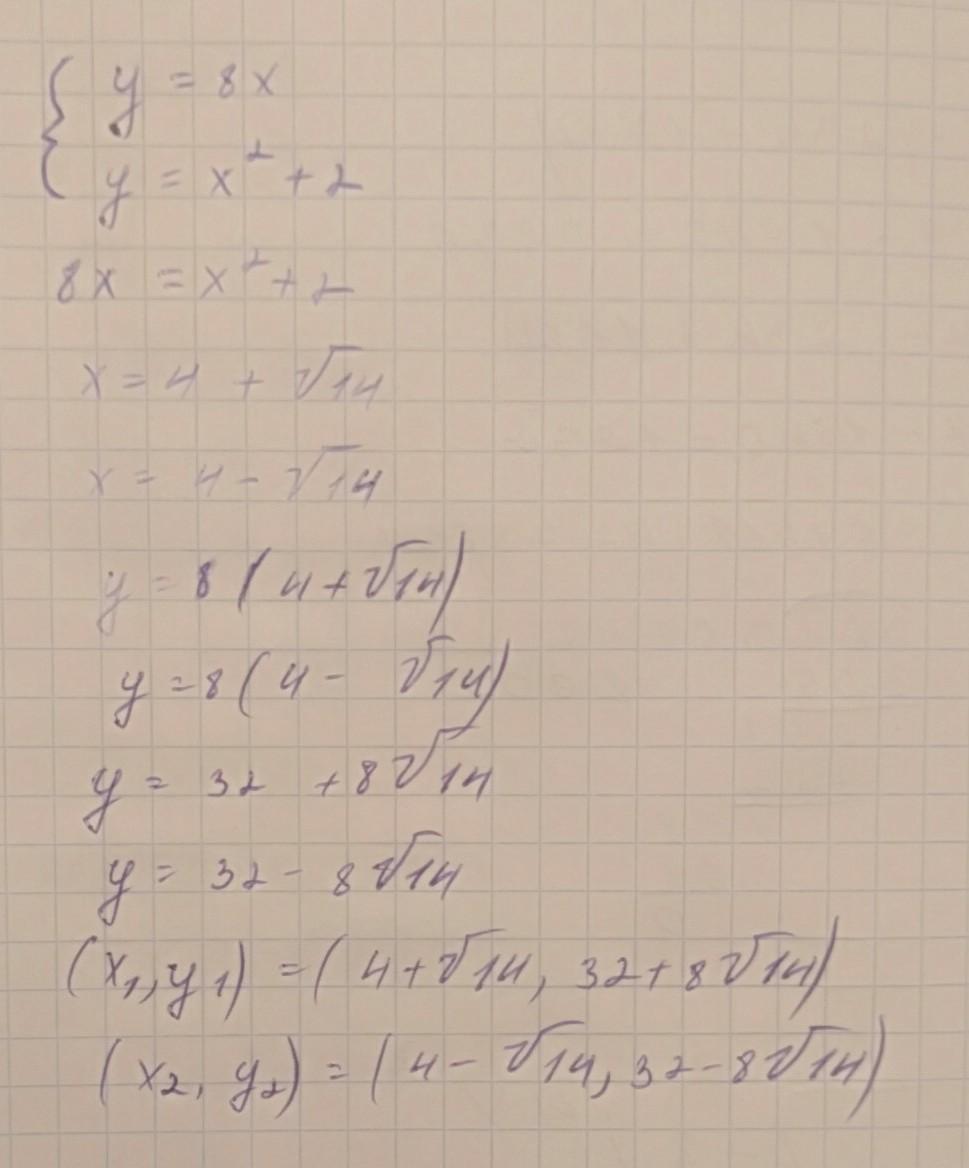 { y = 8x
y = x² + 2
8x = x² + 2
x = 4 + √14
x = 4 - √14
y = 8(4 + √14)
y = 8(4 - √14)
y = 32 + 8√14
y = 32 - 8√14
(x₁, y₁) = (4 + √14, 32 + 8√14)
(x₂, y₂) = (4 - √14, 32 - 8√14)